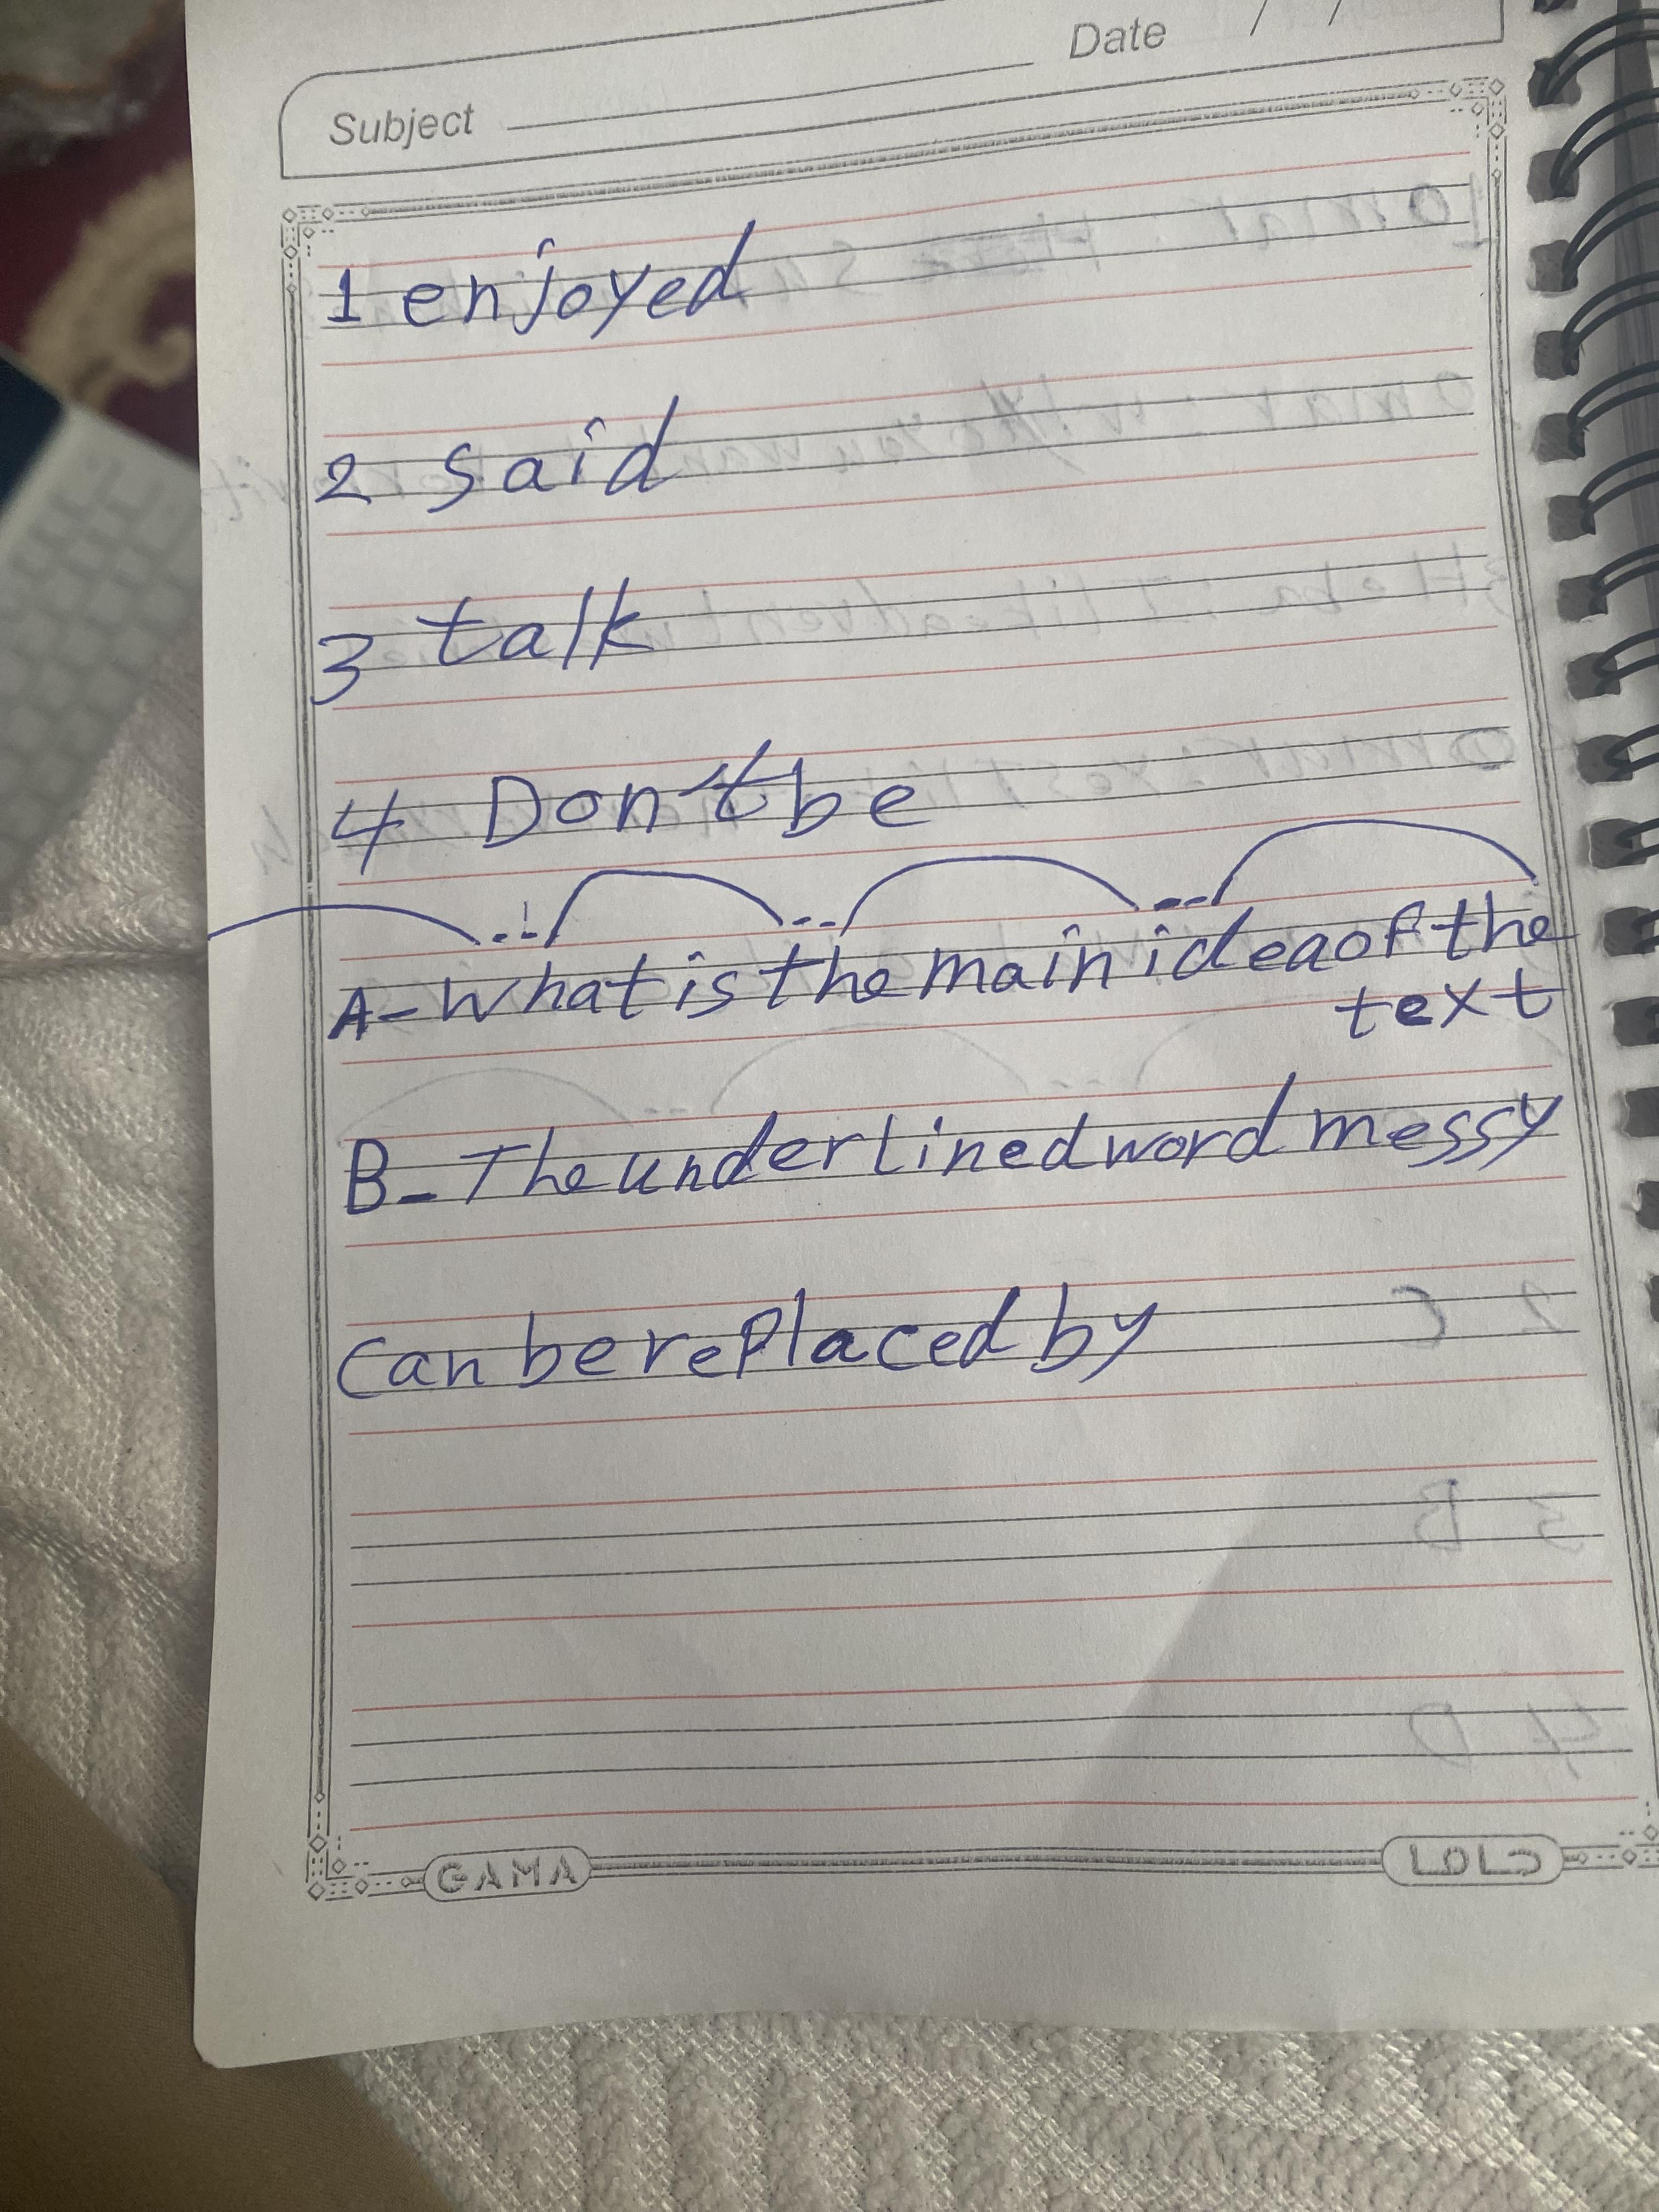 Subject
Date / /
1 enjoyed
2 said
3 talk
4 Don't be
A- What is the main idea of the
text
B- The underlined word messy
can be replaced by
GAMA